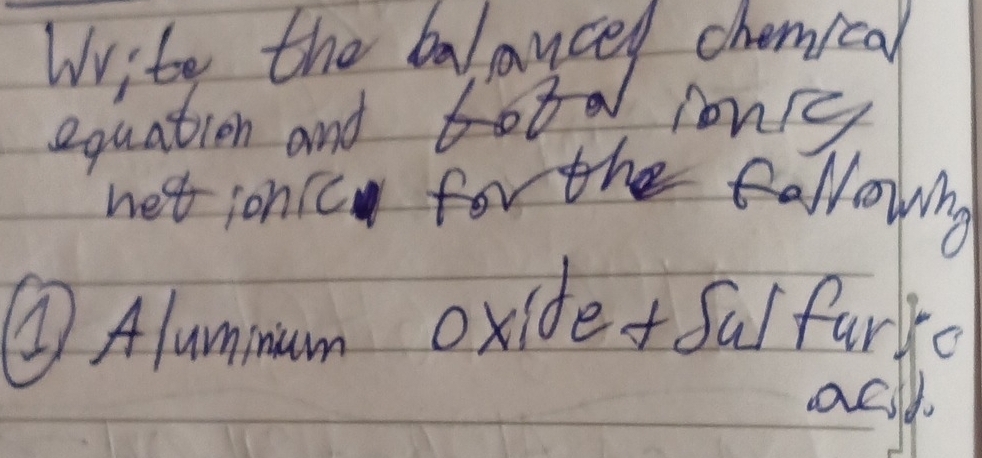 Write the balanced chemical
equation and total ionic
net ionic for the following
① Aluminium oxide + Sulfuric
acid.